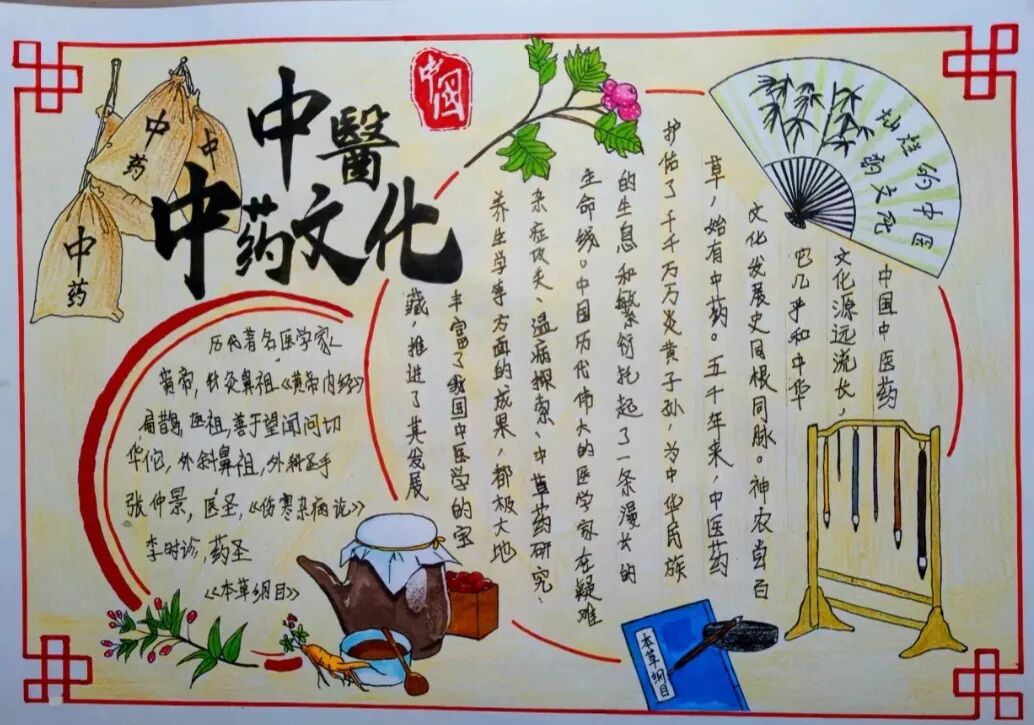 中醫
中药文化
中国
中药
中
中药
灿烂的中国
韵文化
中国中医药
文化源远流长，
它几乎和中华
文化发展史同根同脉。神农尝百
草，始有中药。五千年来，中医药
护佑了千千万万炎黄子孙，为中华民族
的生息和繁衍托起了一条漫长的
生命线。中国历代伟大的医学家在疑难
杂症攻关、温病探索、中草药研究、
养生学等方面的成果，都极大地
丰富了我国中医学的宝
藏，推进了其发展
历代著名医学家
黄帝，针灸鼻祖，《黄帝内经》
扁鹊，医祖，善于望闻问切
华佗，外斜鼻祖，外科圣手
张仲景，医圣，《伤寒杂病论》
李时诊，药圣
《本草纲目》
本草纲目